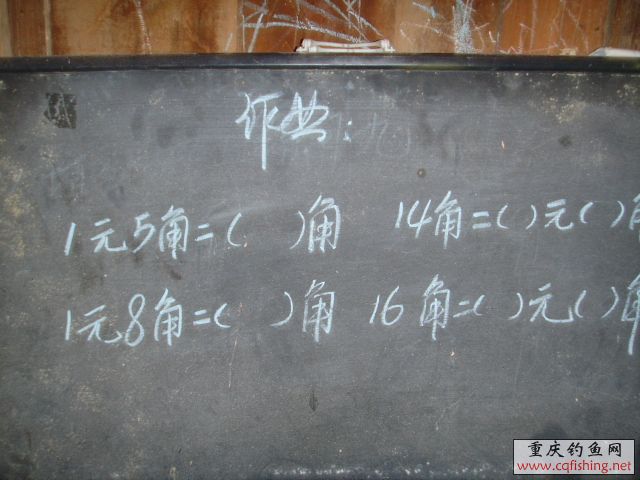 作业：
1元5角=( )角 14角=( )元( )角
1元8角=( )角 16角=( )元( )角
重庆钓鱼网
www.cqfishing.net